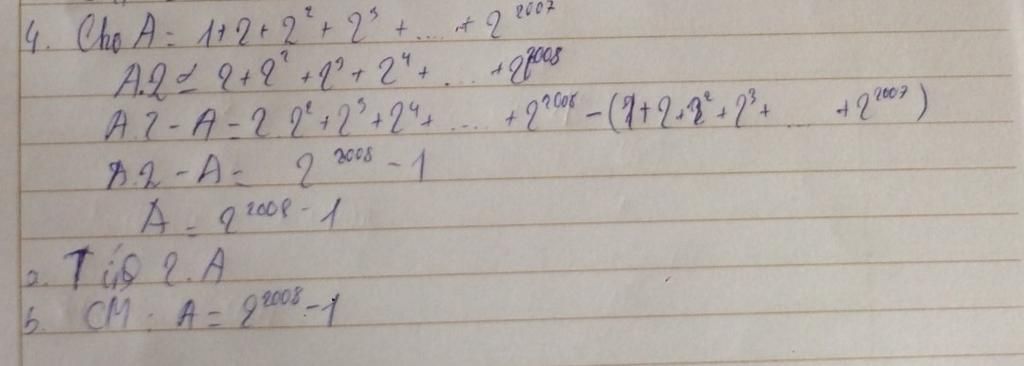 4. Cho A = 1+2+2²+2³+....+2²⁰⁰⁷
A.2 = 2+2²+2³+2⁴+....+2²⁰⁰⁸
A.2-A = 2 2²+2³+2⁴+....+2²⁰⁰⁸-(1+2+2²+2³+....+2²⁰⁰⁷)
A.2-A = 2²⁰⁰⁸-1
A = 2²⁰⁰⁸-1
a. Tính 2.A
b. CM: A = 2²⁰⁰⁸-1